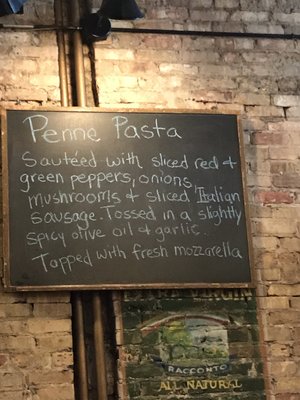 Penne Pasta
Sautéed with sliced red &
green peppers, onions,
mushrooms & sliced Italian
sausage. Tossed in a slightly
spicy olive oil & garlic.
Topped with fresh mozzarella
RACCONTO
ALL NATURAL